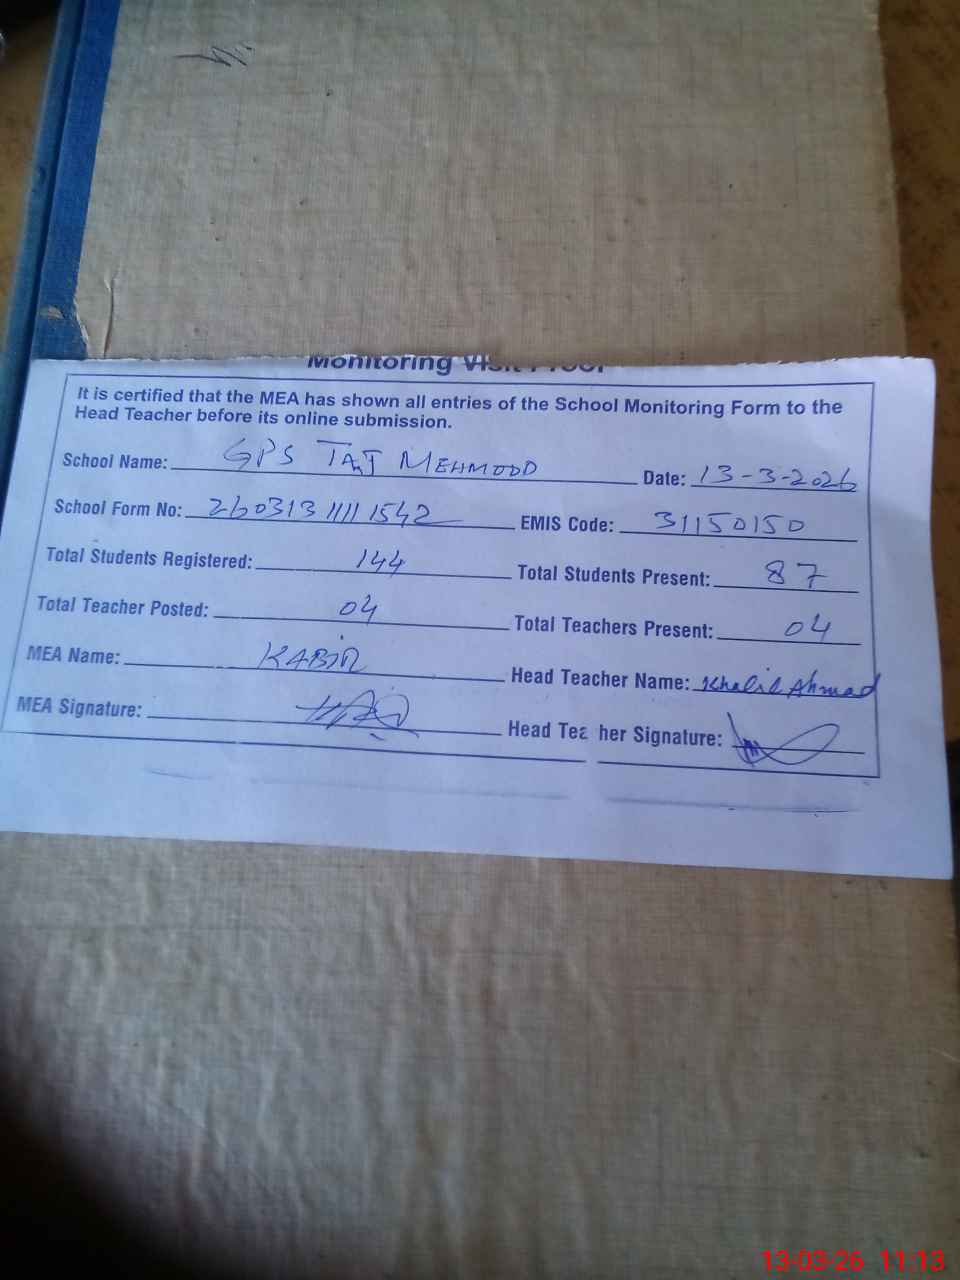 Monitoring Visit Proof
It is certified that the MEA has shown all entries of the School Monitoring Form to the
Head Teacher before its online submission.
School Name: GPS TAJ MEHMOOD Date: 13-3-2026
School Form No: 260313 11111 1542 EMIS Code: 31150150
Total Students Registered: 144 Total Students Present: 87
Total Teacher Posted: 04 Total Teachers Present: 04
MEA Name: KABIR Head Teacher Name: Khalil Ahmad
MEA Signature: Head Teacher Signature:
13-03-26 11:13